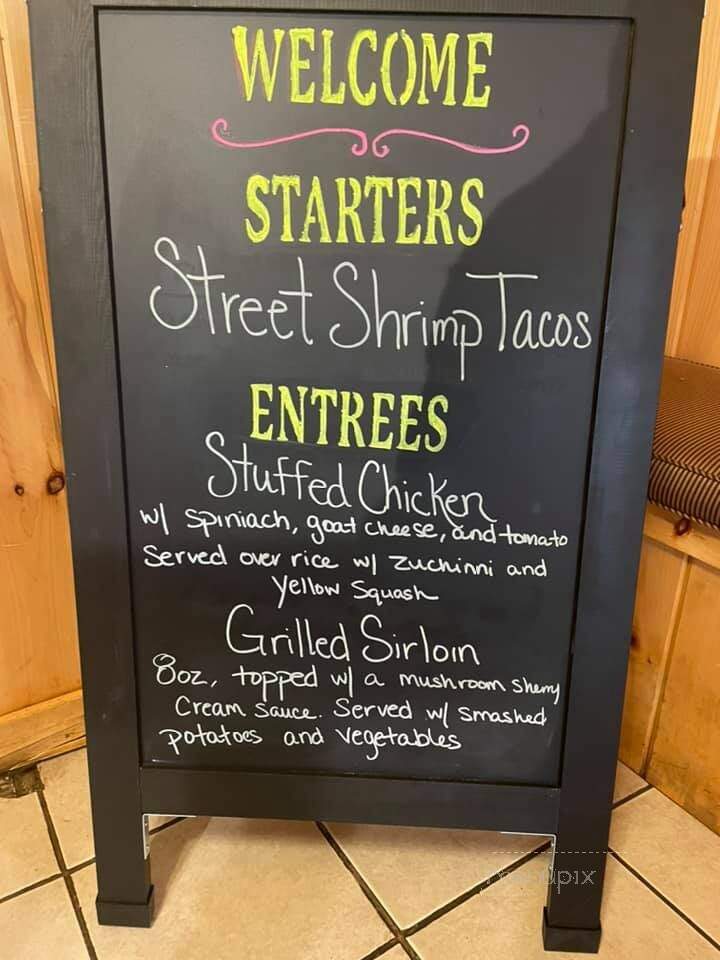 WELCOME
STARTERS
Street Shrimp Tacos
ENTREES
Stuffed Chicken
w/ Spiniach, goat cheese, and tomato
Served over rice w/ zuchinni and
Yellow Squash
Grilled Sirloin
8oz, topped w/ a mushroom sherry
Cream Sauce. Served w/ smashed
potatoes and vegetables